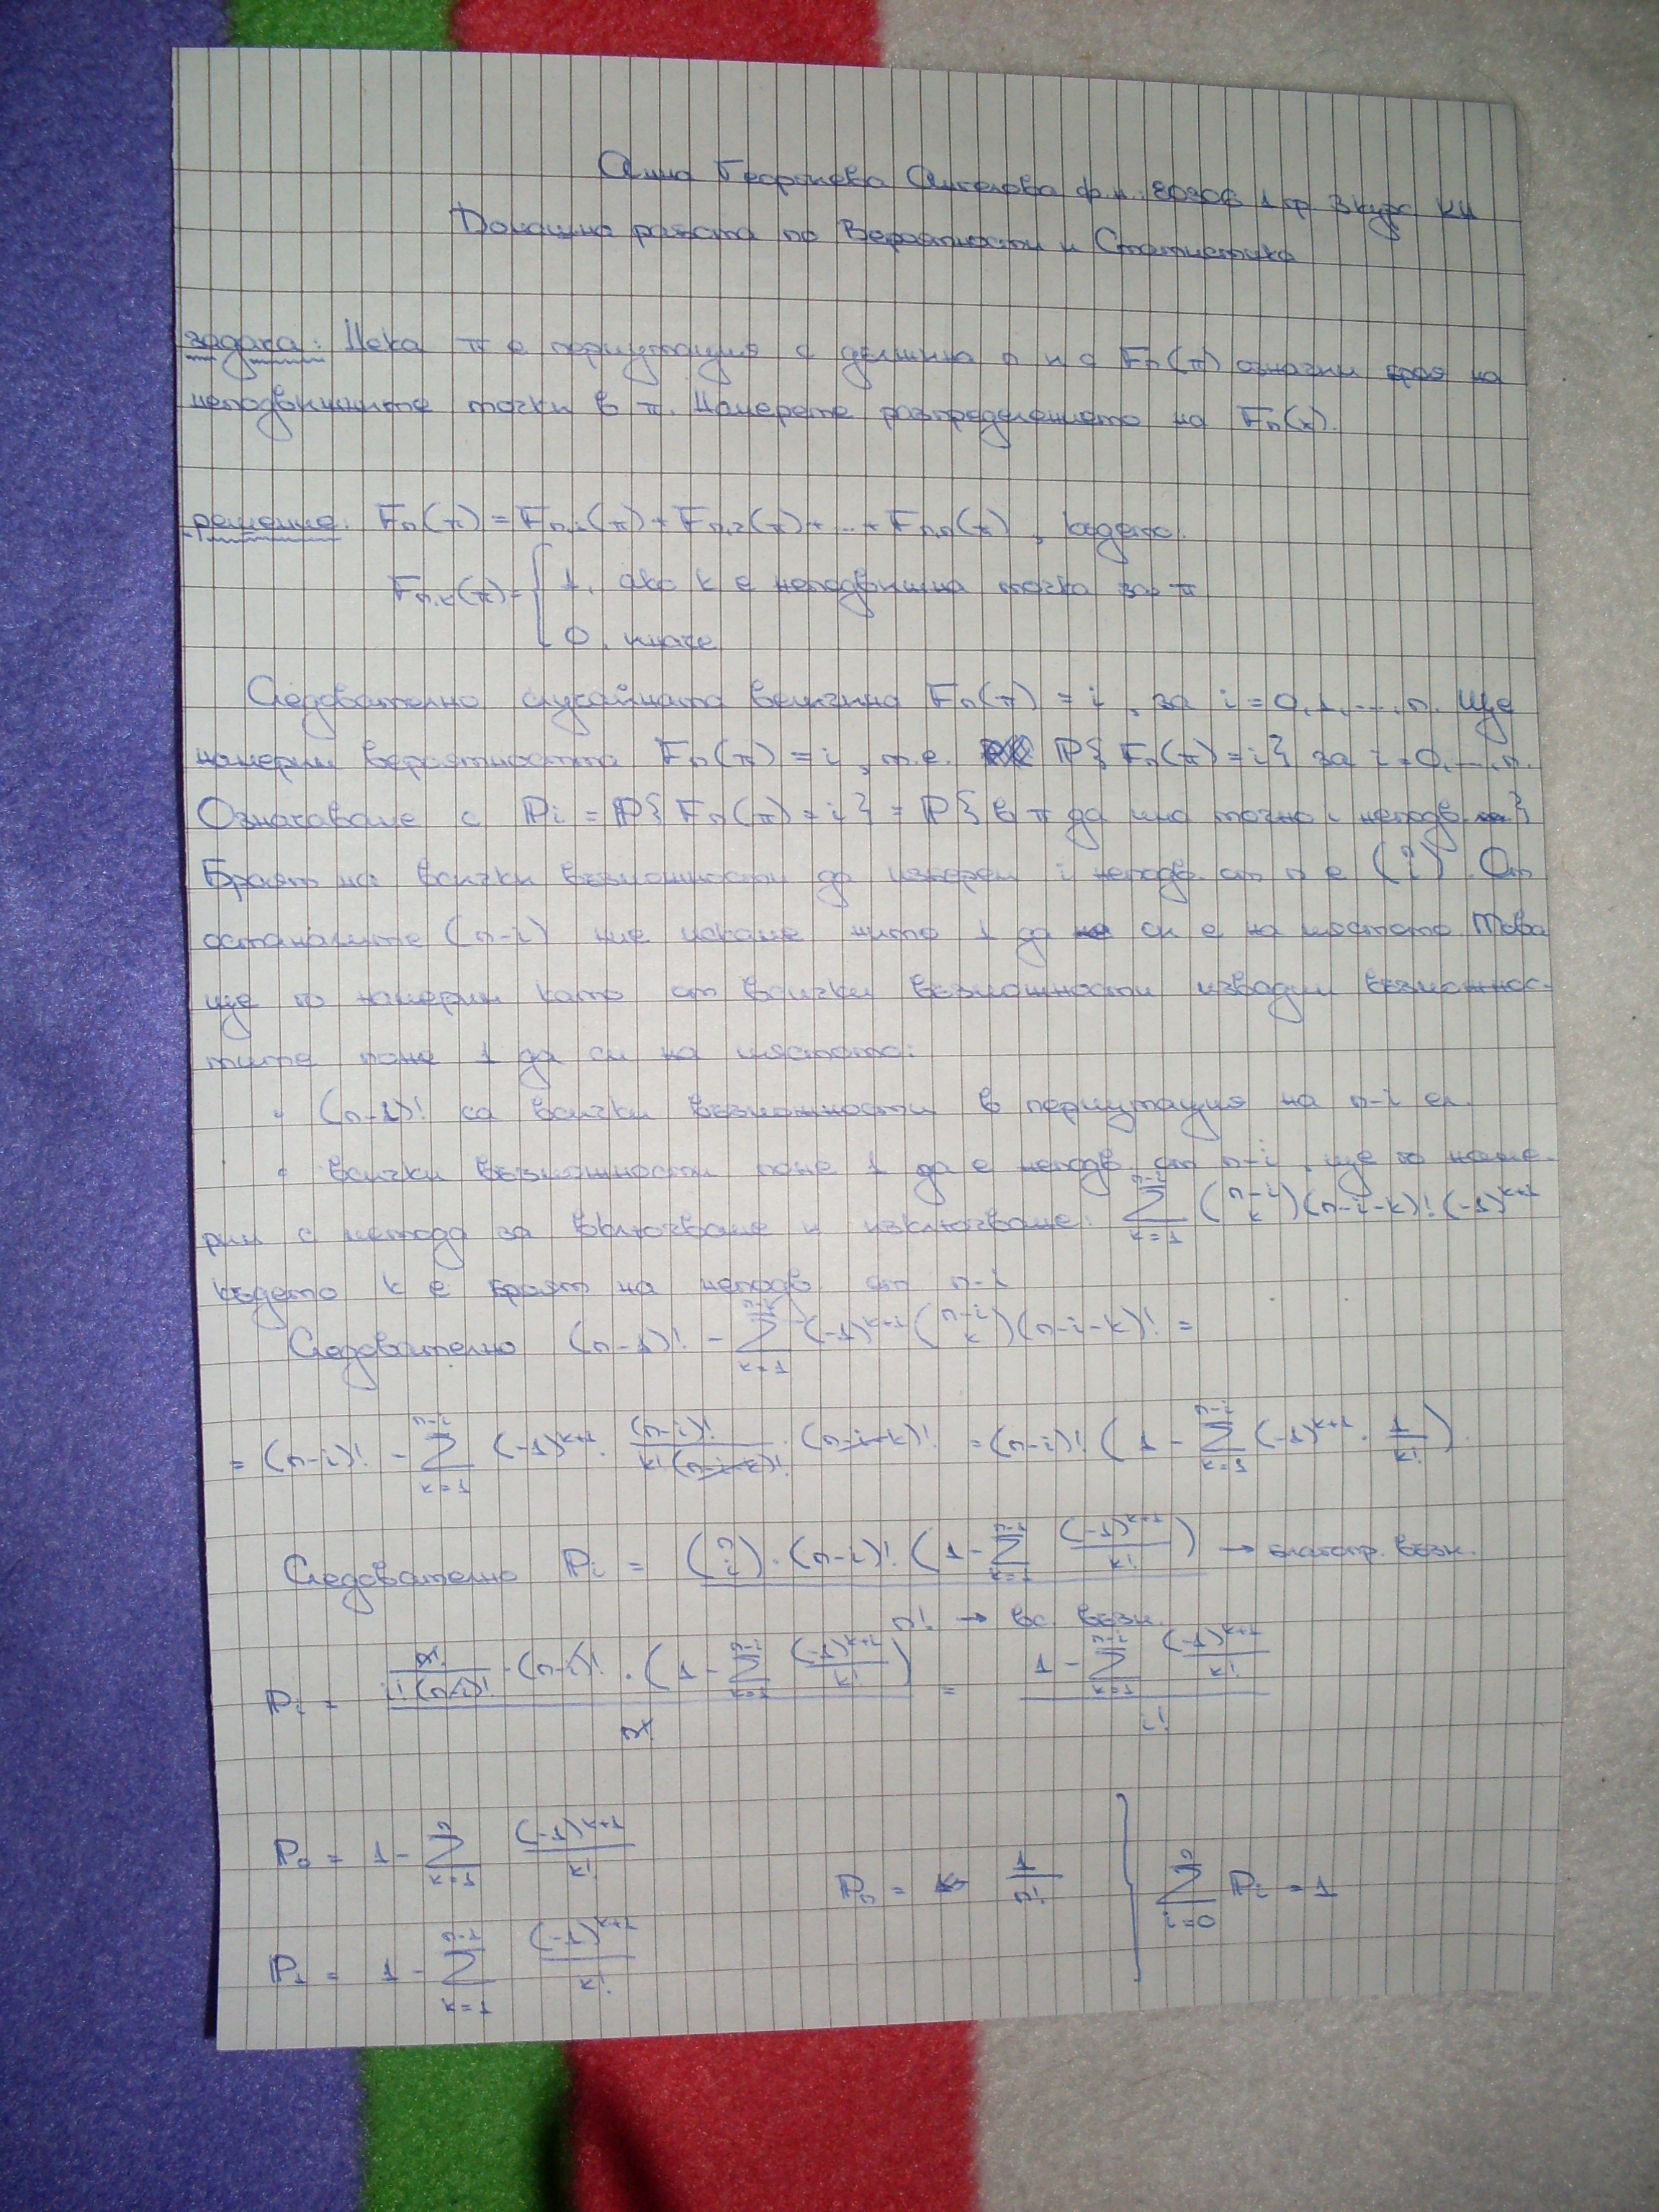 Анна Георгиева Ангелова ф.н.: 80906 1 гр. 3 курс КН
Домашна работа по Вероятности и Статистика
задача: Нека π е пермутация с дължина n и с Fn(π) означим броя на
неподвижните точки в π. Намерете разпределението на Fn(π).
решение: Fn(π) = Fn,1(π) + Fn,2(π) + ... + Fn,n(π), където:
Fn,k(π) = { 1, ако k е неподвижна точка за π
0, иначе
Следователно случайната величина Fn(π) = i, за i = 0, 1, ..., n. Ще
намерим вероятността Fn(π) = i, т.е. ℙ{Fn(π) = i} за i = 0, ..., n.
Означаваме с ℙi = ℙ{Fn(π) = i} = ℙ{в π да има точно i неподв.}
Броят на всички възможности да изберем i неподв. от n е (n i). От
останалите (n-i) ние искаме нито 1 да си е на мястото. Това
ще го намерим като от всички възможности извадим възможнос-
тите поне 1 да си на мястото:
• (n-1)! са всички възможности в пермутация на n-i ел.
• всички възможности поне 1 да е неподв. от n-i, ще го наме-
рим с метода за включване и изключване: ∑_{k=1}^{n-i} (n-i k)(n-i-k)!(-1)^{k+1}
където k е броят на неподв. от n-i
Следователно (n-1)! - ∑_{k=1}^{n-i} (-1)^{k+1} (n-i k)(n-i-k)! =
= (n-i)! - ∑_{k=1}^{n-i} (-1)^{k+1} · (n-i)!/(k!(n-i-k)!) · (n-i-k)! = (n-i)! (1 - ∑_{k=1}^{n-i} (-1)^{k+1} · 1/k!)
Следователно ℙi = (n i) · (n-i)! · (1 - ∑_{k=1}^{n-i} (-1)^{k+1}/k!) → благопр. възм.
n! → вс. възм.
ℙi = n!/(i!(n-i)!) · (n-i)! · (1 - ∑_{k=1}^{n-i} (-1)^{k+1}/k!) / n! = (1 - ∑_{k=1}^{n-i} (-1)^{k+1}/k!) / i!
ℙ0 = 1 - ∑_{k=1}^{n} (-1)^{k+1}/k!
ℙn = 1/n! | ∑_{i=0}^{n} ℙi = 1
ℙ1 = 1 - ∑_{k=1}^{n-1} (-1)^{k+1}/k!